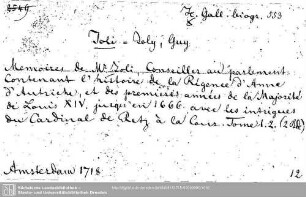 Gall. biogr. 553
Joli = Joly, Guy
Memoires de Mr Joli, Conseiller au parlement
Contenant l'histoire de la Régence d'Anne
d'Autriche, et des premières années de la Majorité
de Louis XIV. jusqu'en 1666. avec les intrigues
du Cardinal de Retz à la Cour. Tome 1. 2.
Amsterdam 1718
12